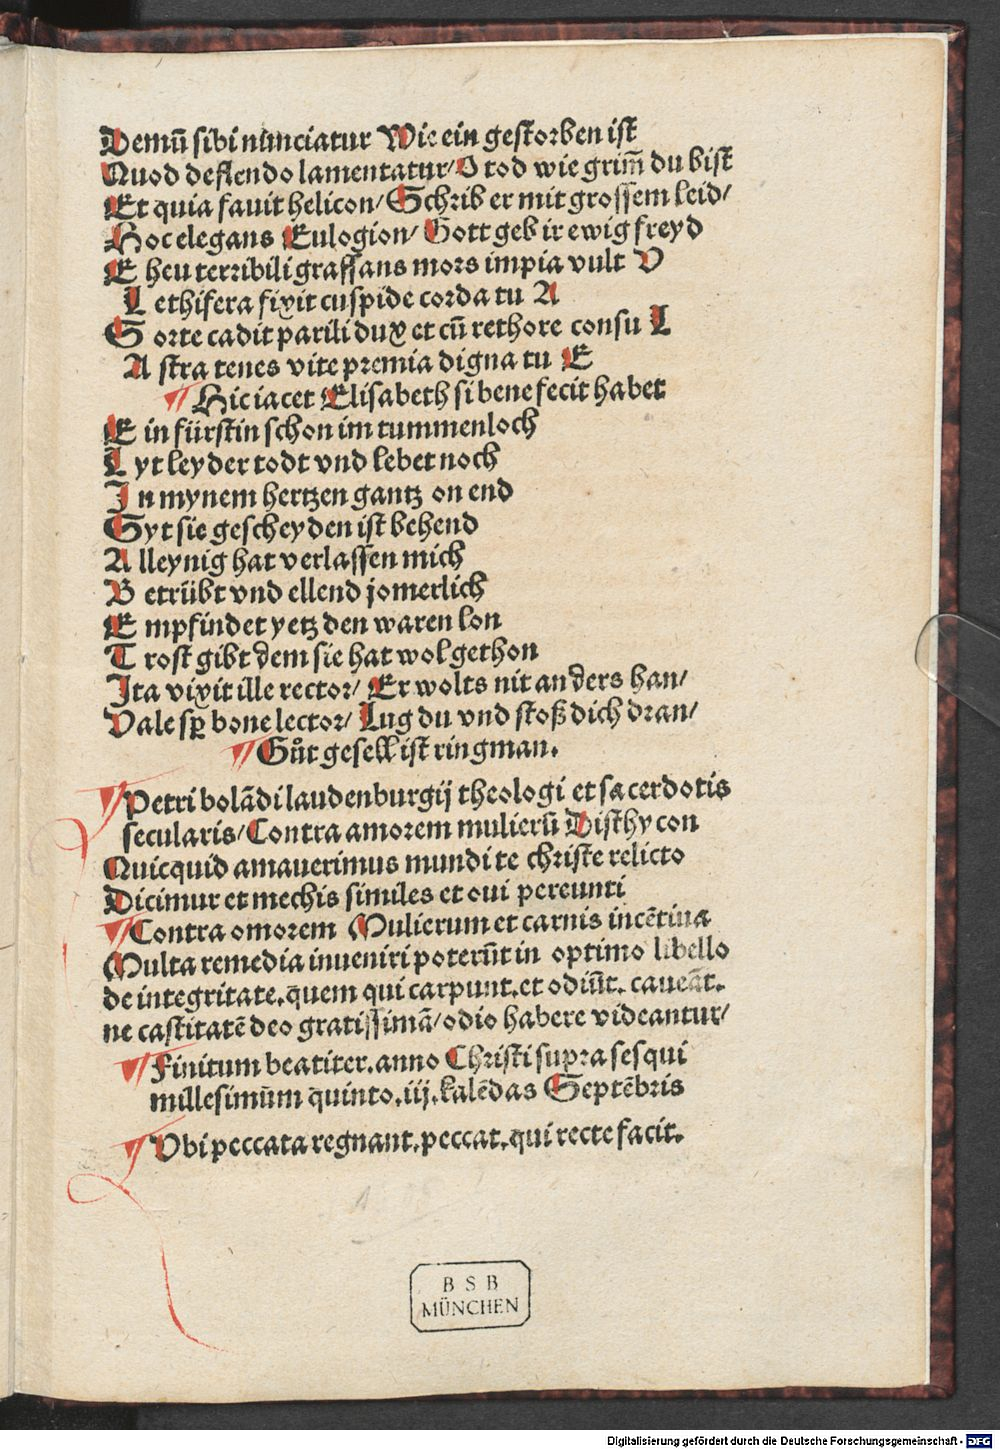 Demū sibi nūnciatur Wie ein gestorben ist
Quod deflendo lamentatur/ O tod wie grim̄ du bist
Et quia fauit helicon/ Schrib er mit grossem leid/
Hoc elegans Eulogion/ Gott geb ir ewig freyd
E heu terribili grassans mors impia vult V
L ethifera fixit cuspide corda tu A
S orte cadit parili dux et cū rethore consu L
A stra tenes vite premia digna tu E
¶ Hic iacet Elisabeth si bene fecit habet
E in fürstin schon im tummenloch
L yt leyder todt vnd lebet noch
I n mynem hertzen gantz on end
S yt sie gescheyden ist behend
A lleynig hat verlassen mich
B etrübt vnd ellend jomerlich
E mpfindet yetz den waren lon
T rost gibt dem sie hat wol gethon
Ita vixit ille rector/ Er wolts nit anders han/
Vale sꝑ bone lector/ Lug du vnd stoß dich dran/
¶ Gůt gesell ist ringman.
¶ Petri bolādi laudenburgij theologi et sacerdotis
secularis/ Contra amorem mulierū Disthycon
Quicquid amauerimus mundi te christe relicto
Dicimur et mechis similes et oui pereunti
¶ Contra omorem Mulierum et carnis incētiua
Multa remedia inueniri poterūt in optimo libello
de integritate. quem qui carpunt. et odiūt. caueāt.
ne castitatē deo gratissimā/ odio habere videantur/
¶ Finitum beatiter. anno Christi supra sesqui
millesimūm quinto. iij. kalēdas Septēbris
¶ Vbi peccata regnant. peccat. qui recte facit.
B S B
MÜNCHEN
Digitalisierung gefördert durch die Deutsche Forschungsgemeinschaft - DFG